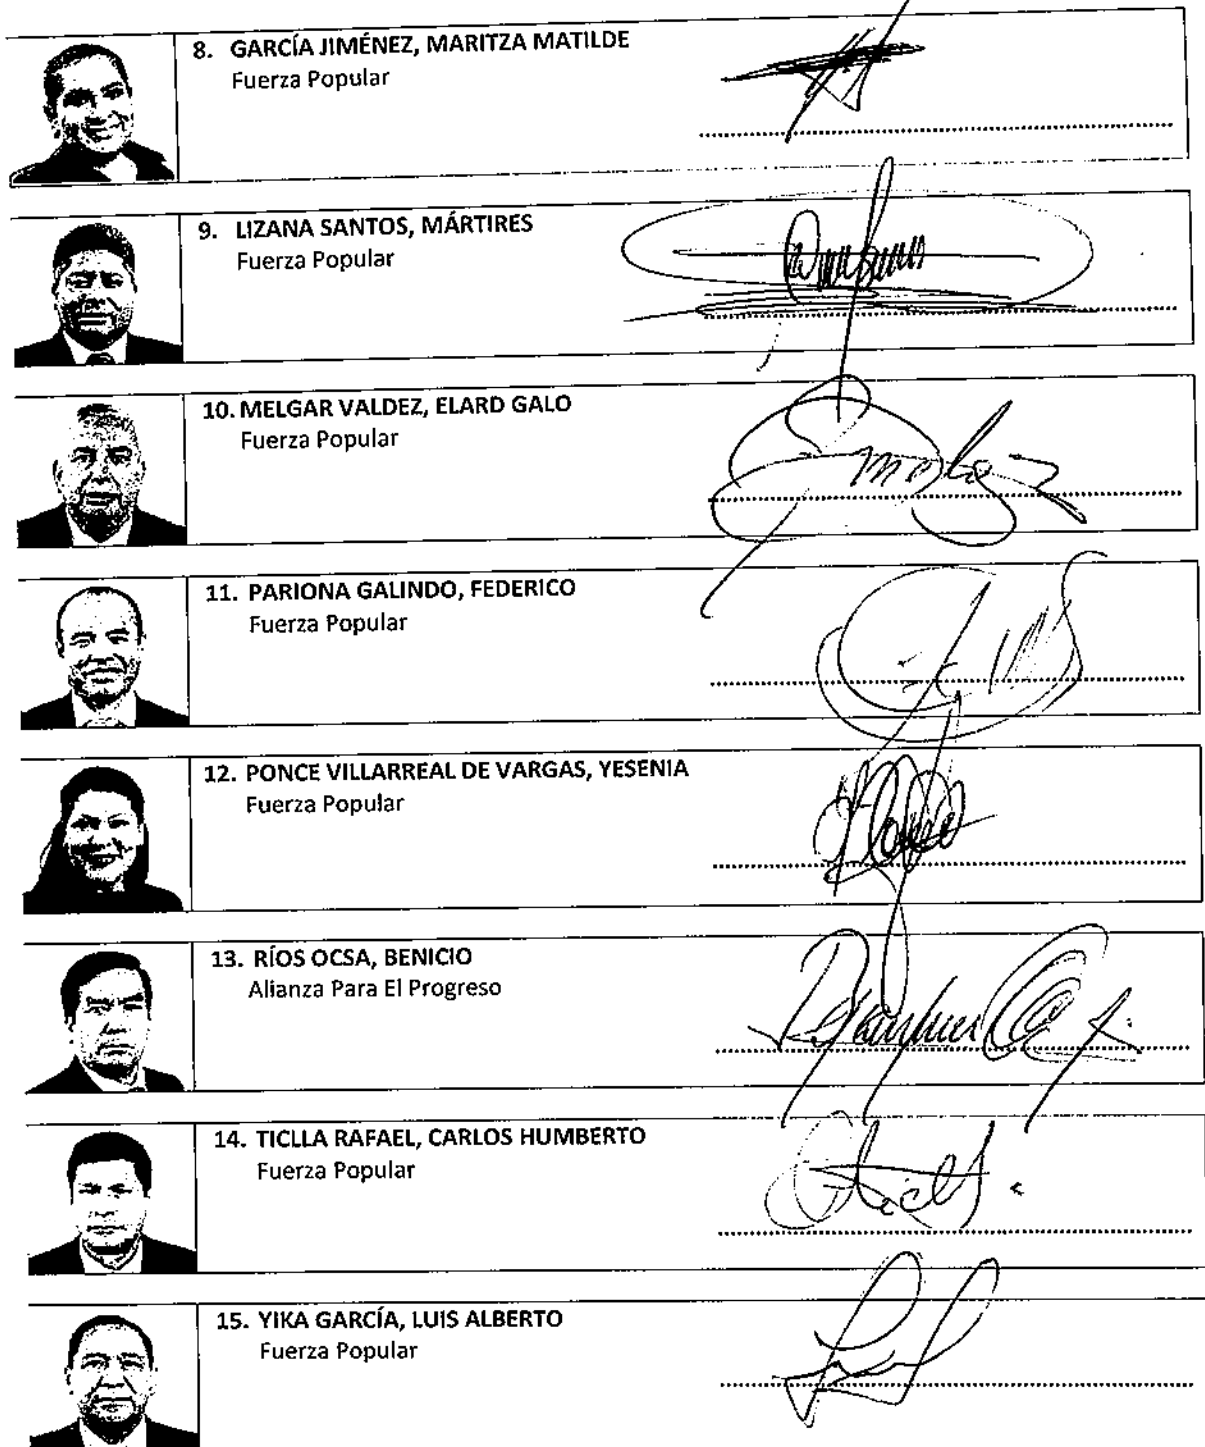 8. GARCÍA JIMÉNEZ, MARITZA MATILDE
Fuerza Popular
9. LIZANA SANTOS, MÁRTIRES
Fuerza Popular
10. MELGAR VALDEZ, ELARD GALO
Fuerza Popular
11. PARIONA GALINDO, FEDERICO
Fuerza Popular
12. PONCE VILLARREAL DE VARGAS, YESENIA
Fuerza Popular
13. RÍOS OCSA, BENICIO
Alianza Para El Progreso
14. TICLLA RAFAEL, CARLOS HUMBERTO
Fuerza Popular
15. YIKA GARCÍA, LUIS ALBERTO
Fuerza Popular